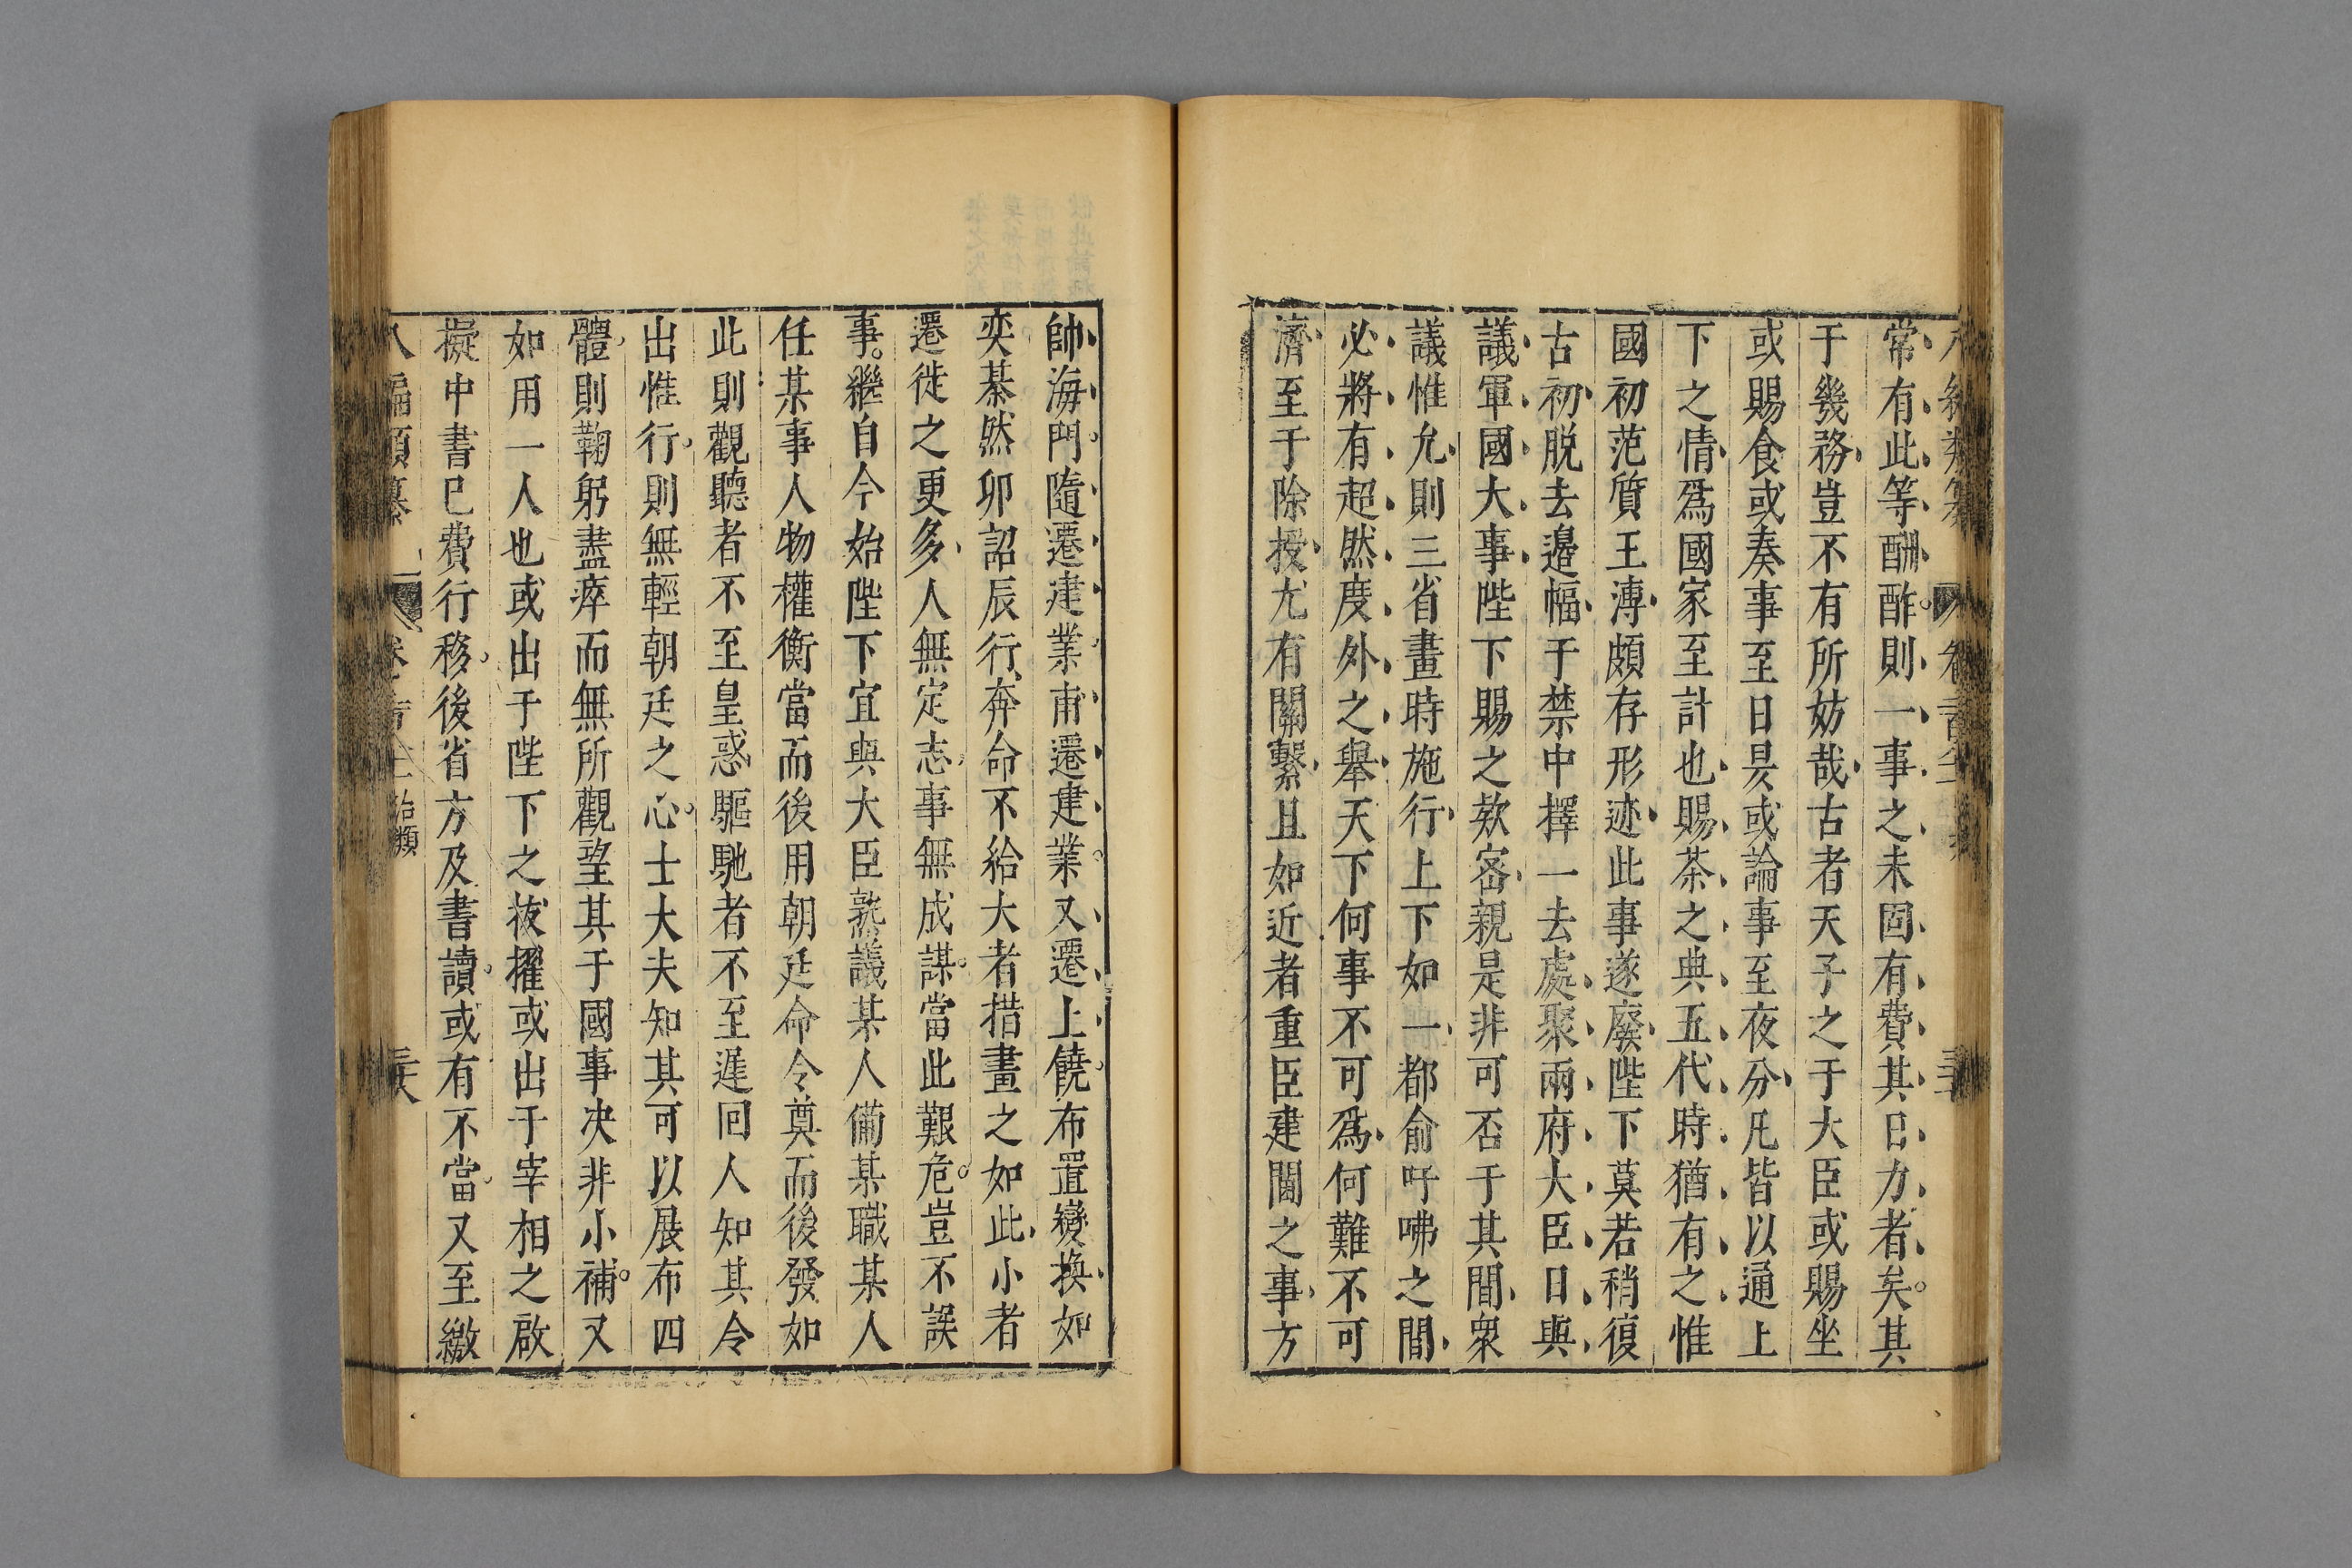 常有此等酬酢則一事之未固有費其日力者矣其
于幾務豈不有所妨哉古者天子之于大臣或賜坐
或賜食或奏事至日昃或論事至夜分凡皆以通上
下之情爲國家至計也賜茶之典五代時猶有之惟
國初范質王溥頗存形迹此事遂廢陛下莫若稍復
古初脱去邉幅于禁中擇一去處聚兩府大臣日與
議軍國大事陛下賜之欵密親是非可否于其間衆
議惟允則三省畫時施行上下如一都俞吁咈之間
必將有超然度外之舉天下何事不可爲何難不可
濟至于除授尤有關繫且如近者重臣建閫之事方
帥海門隨遷建業甫遷建業又遷上饒布置變換如
奕棊然卯詔辰行奔命不給大者措畫之如此小者
遷徙之更多人無定志事無成謀當此艱危豈不誤
事繼自今始陛下宜與大臣熟議某人備某職某人
任某事人物權衡當而後用朝廷命令奠而後發如
此則觀聽者不至皇惑驅馳者不至遅囘人知其令
出惟行則無輕朝廷之心士大夫知其可以展布四
體則鞠躬盡瘁而無所觀望其于國事决非小補又
如用一人也或出于陛下之拔擢或出于宰相之啟
擬中書已費行移後省方及書讀或有不當又至繳
八編類纂
治類